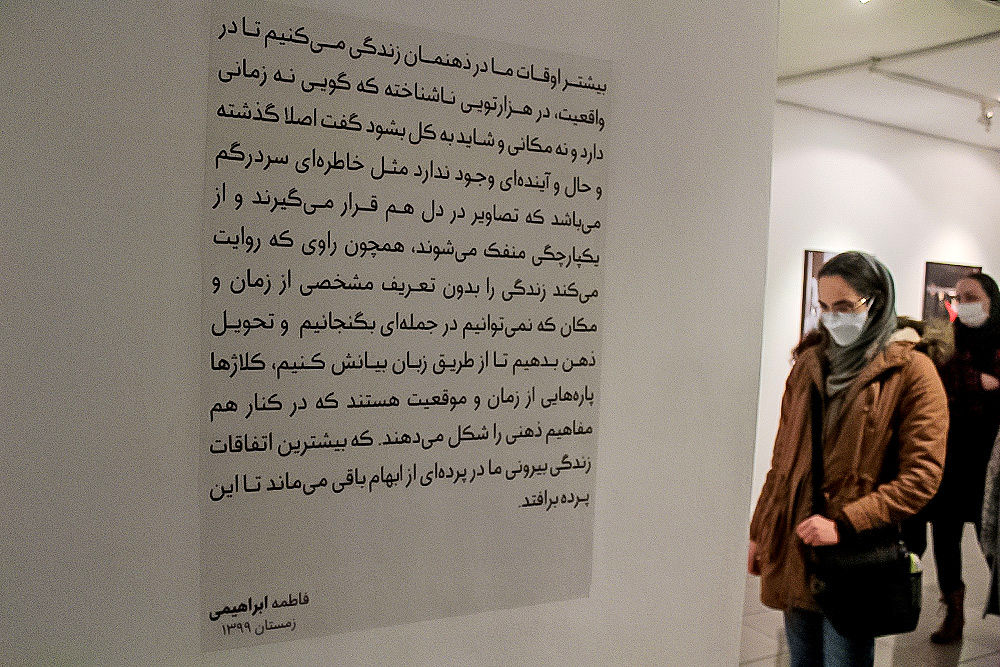 بیشتر اوقات ما در ذهنمان زندگی می‌کنیم تا در
واقعیت، در هزارتویی ناشناخته که گویی نه زمانی
دارد و نه مکانی و شاید به کل بشود گفت اصلا گذشته
و حال و آینده‌ای وجود ندارد مثل خاطره‌ای سردرگم
می‌باشد که تصاویر در دل هم قرار می‌گیرند و از
یکپارچگی منفک می‌شوند، همچون راوی که روایت
می‌کند زندگی را بدون تعریف مشخصی از زمان و
مکان که نمی‌توانیم در جمله‌ای بگنجانیم و تحویل
ذهن بدهیم تا از طریق زبان بیانش کنیم، کلاژها
پاره‌هایی از زمان و موقعیت هستند که در کنار هم
مفاهیم ذهنی را شکل می‌دهند. که بیشترین اتفاقات
زندگی بیرونی ما در پرده‌ای از ابهام باقی می‌ماند تا این
پرده برافتد.
فاطمه ابراهیمی
زمستان ۱۳۹۹